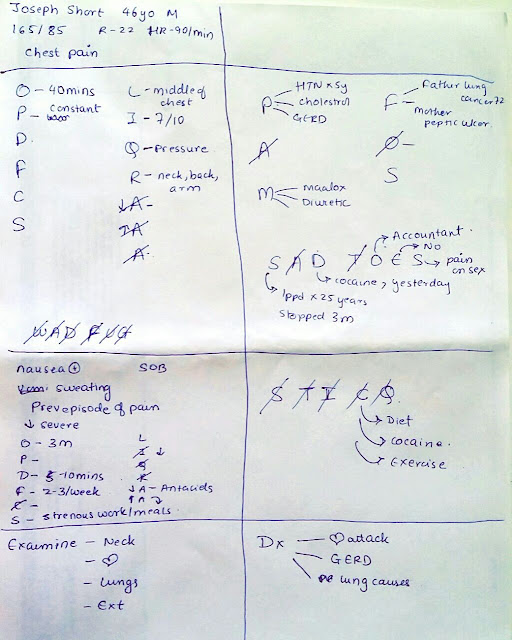 Joseph Short 46yo M
165/85 R-22 HR-90/min
Chest pain
O - 40mins
P - constant
D
F
C
S
L - middle of chest
I - 7/10
Q - Pressure
R - neck, back, arm
↓A -
↑A
A
WADFUG
P HTN x 5y
cholestrol
GERD
A
M Maalox
Diuretic
F Father lung cancer 72
mother peptic ulcer
O -
S
SAD TOES
Accountant
No
pain on sex
cocaine, yesterday
1ppd x 25 years
Stopped 3m
nausea ⊕ SOB
sweating
Prev episode of pain
↓ severe
O - 3m
P -
D - 5-10mins
F - 2-3/week
C -
S - strenous work/meals
L
I ↓
Q
R
↓A - Antacids
↑A
STICQ
Diet
cocaine.
Exercise
Examine - Neck
- ♡
- Lungs
- Ext
Dx ♡ attack
GERD
lung causes